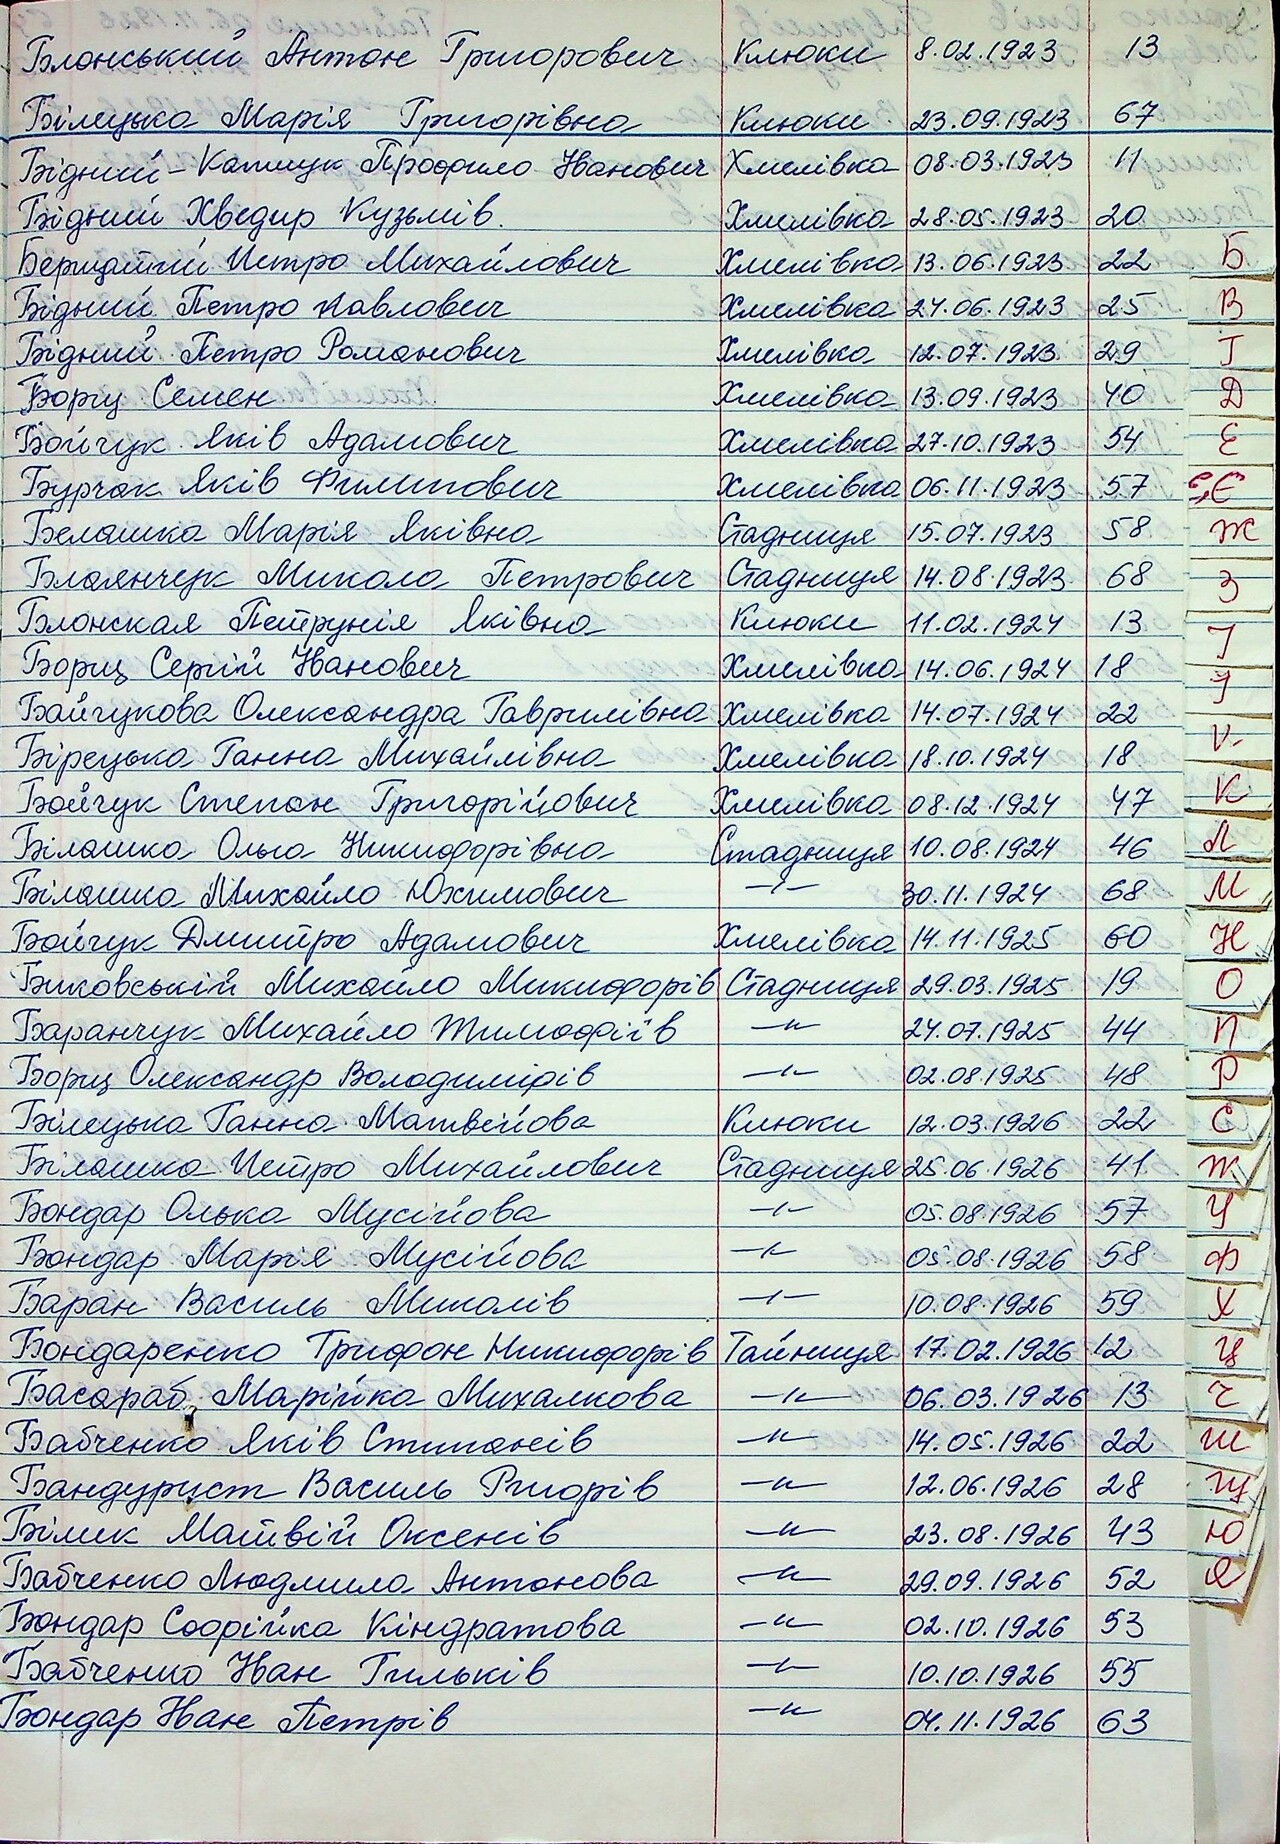 Блонський Антон Григорович Клюки 8.02.1923 13
Білецька Марія Григорівна Клюки 23.09.1923 67
Бідний-Капшук Профило Іванович Хмелівка 08.03.1923 11
Бідний Хведир Кузьмів. Хмелівка 28.05.1923 20
Петро Михайлович Хмелівка 13.06.1923 22
Бідний Петро Павлович Хмелівка 24.06.1923 25
Бідний Петро Романович Хмелівка 12.07.1923 29
Борщ Семен Хмелівка 13.09.1923 40
Бойчук Яків Адамович Хмелівка 27.10.1923 54
Бурчак Яків Филипович Хмелівка 06.11.1923 57
Белашка Марія Яківна Стадниця 15.07.1923 58
Блаянчук Микола Петрович Стадниця 14.08.1923 68
Блонская Петрунія Яківна Клюки 11.02.1924 13
Борщ Сергій Іванович Хмелівка 14.06.1924 18
Байчукова Олександра Гаврилівна Хмелівка 14.07.1924 22
Бірецька Ганна Михайлівна Хмелівка 18.10.1924 18
Бойчук Степан Григорійович Хмелівка 08.12.1924 47
Білашка Ольга Никифорівна Стадниця 10.08.1924 46
Білашка Михайло Юхимович —//— 30.11.1924 68
Бойчук Дмитро Адамович Хмелівка 14.11.1925 60
Биковській Михайло Микифорів Стадниця 29.03.1925 19
Баранчук Михайло Тимофіїв —//— 24.07.1925 44
Борщ Олександр Володимирів —//— 02.08.1925 48
Білецька Ганна Матвійова Клюки 12.03.1926 22
Білашка Петро Михайлович Стадниця 25.06.1926 41
Бондар Олька Мусійова —//— 05.08.1926 57
Бондар Марія Мусійова —//— 05.08.1926 58
Баран Василь Миколів —//— 10.08.1926 59
Бондаренко Трифон Никифорів Тайниця 17.02.1926 12
Басараб Марійка Михалкова —//— 06.03.1926 13
Бабченко Яків Стипанів —//— 14.05.1926 22
Бандурист Василь Ригорів —//— 12.06.1926 28
Білик Матвій Оксенів —//— 23.08.1926 43
Бабченко Людмила Антонова —//— 29.09.1926 52
Бондар Софійка Кіндратова —//— 02.10.1926 53
Бабченко Іван Гильків —//— 10.10.1926 55
Бондар Іван Петрів —//— 04.11.1926 63
Б
В
Г
Д
Е
Є
Ж
З
І
Ї
К
Л
М
Н
О
П
Р
С
Т
У
Ф
Х
Ц
Ч
Ш
Щ
Ю
Я